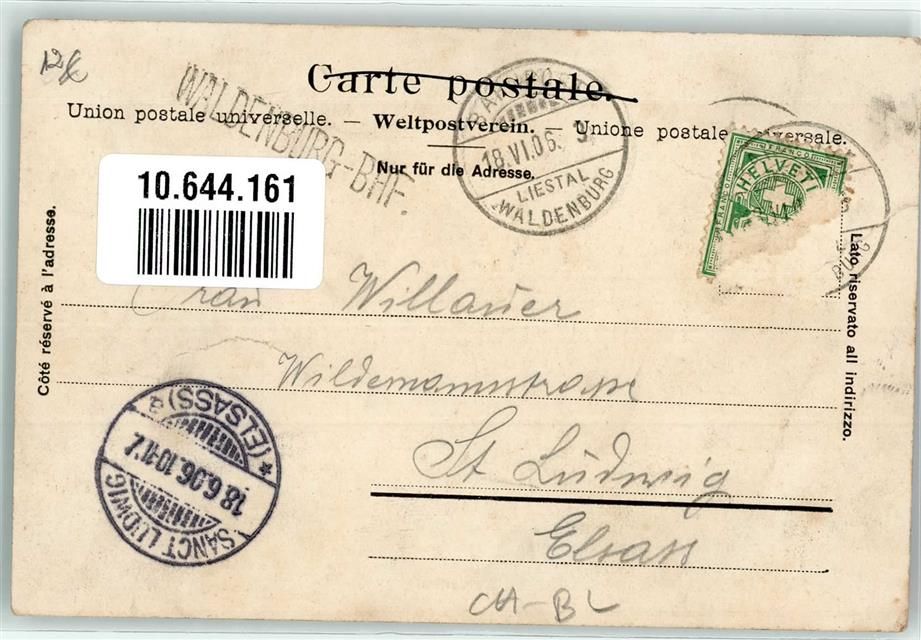 12
Carte postale.
WALDENBURG-BHF.
Union postale universelle. — Weltpostverein. — Unione postale universale.
Nur für die Adresse.
18.VI.06. 9
LIESTAL
WALDENBURG
FRANCO
HELVETI
10.644.161
Côté réservé à l'adresse.
Lato riservato all indirizzo.
Frau Willauer
Wildemannstrasse
St Ludwig
Elsass
SANCT LUDWIG
18.6.06.10-11V.
* (ELSASS) a
CH-BL